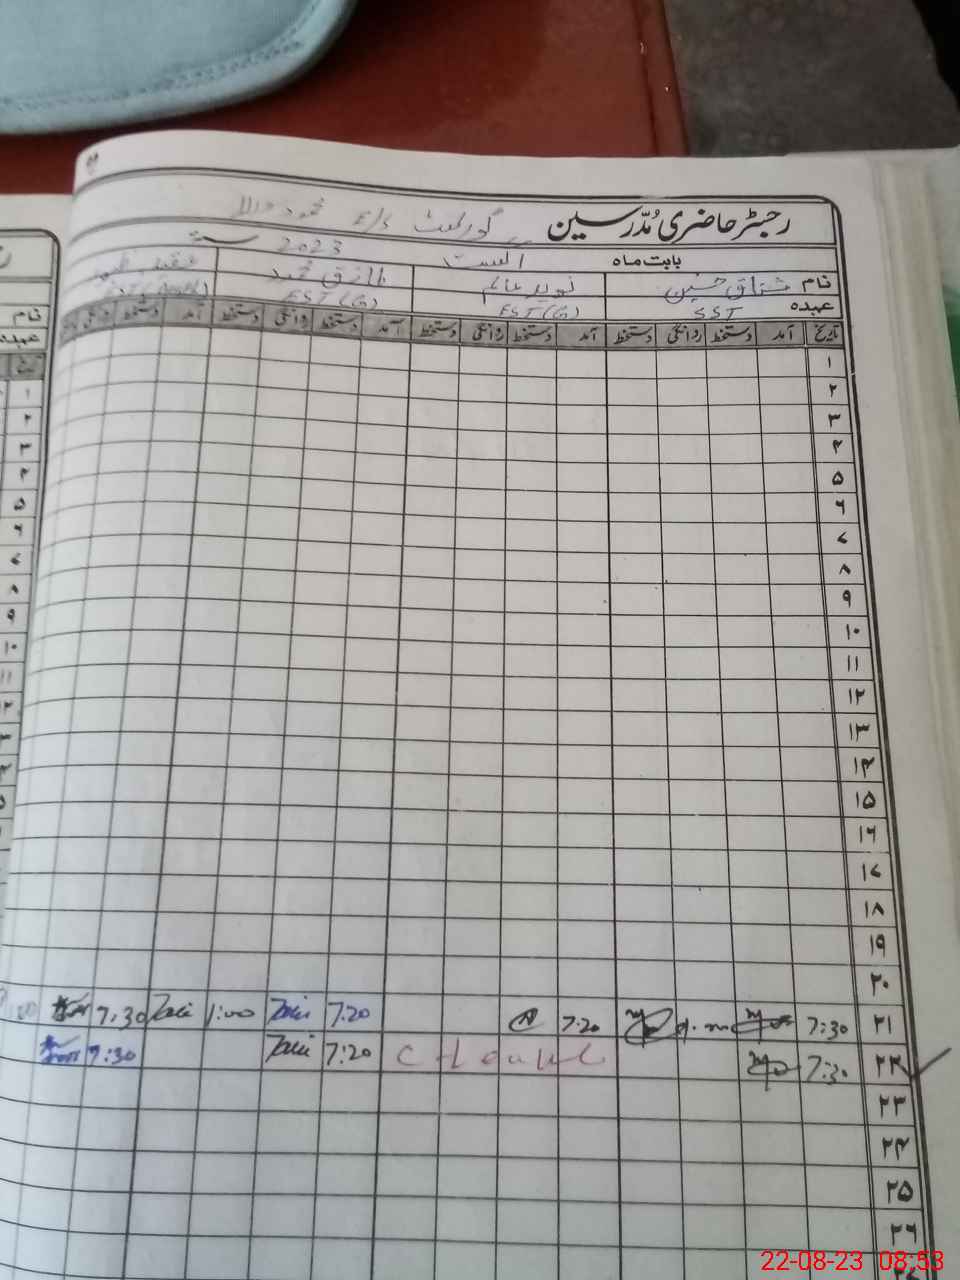 رجسٹر حاضری مُدّرسین گورنمنٹ E/S محمود
بابت ماہ اگست 2023
نام مشتاق حسین نوید عالم طارق محمود
عہدہ SST EST(G) EST(G)
تاریخ آمد دستخط روانگی دستخط آمد دستخط روانگی دستخط آمد دستخط روانگی دستخط آمد دستخط روانگی
۱
۲
۳
۴
۵
۶
۷
۸
۹
۱۰
۱۱
۱۲
۱۳
۱۴
۱۵
۱۶
۱۷
۱۸
۱۹
۲۰
۲۱ 7:30 7:20 7:20 1:00 7:30
۲۲ 7:30 C Leave 7:20 7:30
۲۳
۲۴
۲۵
۲۶
نام
عہدہ
۱
۲
۳
۴
۵
۶
۷
۸
۹
۱۰
۱۱
22-08-23 08:53